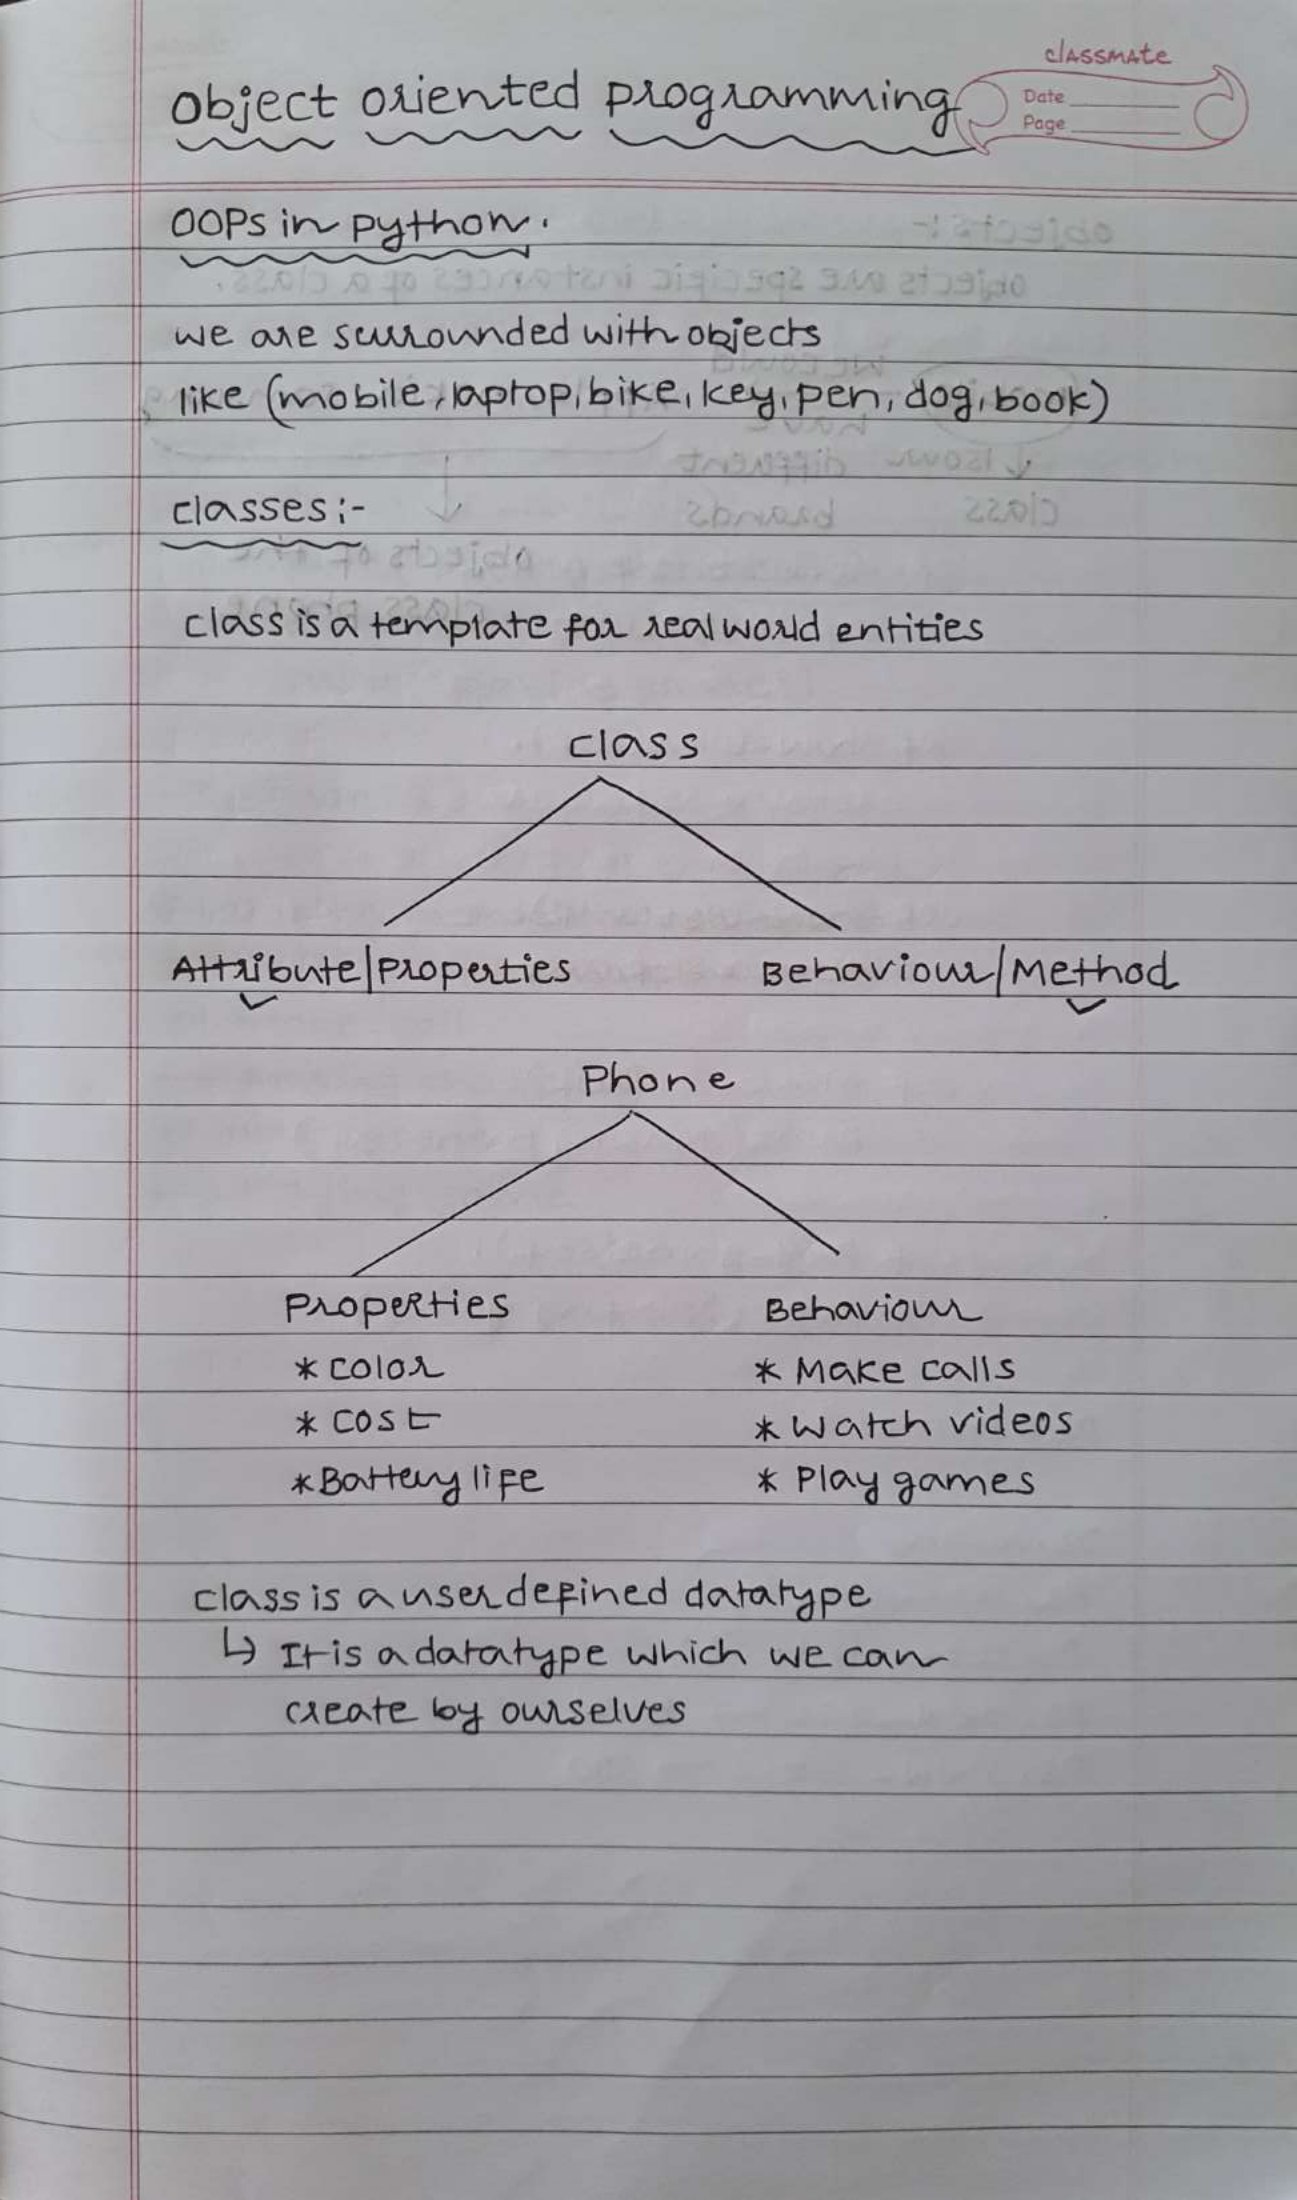 classmate
object oriented programming
Date
Page
OOPs in python.
we are surrounded with objects
like (mobile, laptop, bike, key, pen, dog, book)
classes :-
class is a template for real world entities
class
Attribute/properties Behaviour/Method
Phone
Properties Behaviour
* color * Make calls
* cost * Watch videos
* Battery life * Play games
class is a user defined datatype
↳ It is a datatype which we can
create by ourselves